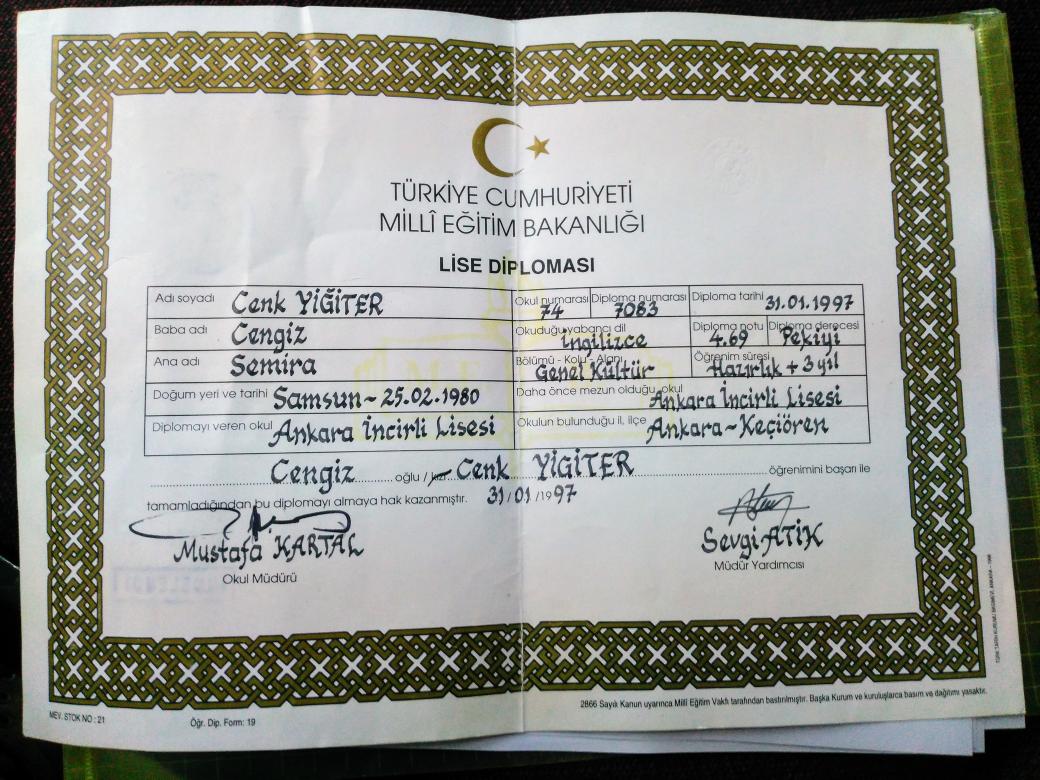 TÜRKİYE CUMHURİYETİ
MİLLÎ EĞİTİM BAKANLIĞI
LİSE DİPLOMASI
Adı soyadı Cenk YİĞİTER Okul numarası 74 Diploma numarası 7083 Diploma tarihi 31.01.1997
Baba adı Cengiz Okuduğu yabancı dil İngilizce Diploma notu 4.69 Diploma derecesi Pekiyi
Ana adı Semira Bölümü - Kolu - Alanı Genel Kültür Öğrenim süresi Hazırlık + 3 yıl
Doğum yeri ve tarihi Samsun ~ 25.02.1980 Daha önce mezun olduğu okul Ankara İncirli Lisesi
Diplomayı veren okul Ankara İncirli Lisesi Okulun bulunduğu il, ilçe Ankara ~ Keçiören
Cengiz oğlu / kızı Cenk YİĞİTER öğrenimini başarı ile
tamamladığından bu diplomayı almaya hak kazanmıştır. 31/01/1997
Mustafa KARTAL Sevgi ATİK
Okul Müdürü Müdür Yardımcısı
MEV. STOK NO : 21 Öğr. Dip. Form: 19 2866 Sayılı Kanun uyarınca Millî Eğitim Vakfı tarafından bastırılmıştır. Başka Kurum ve kuruluşlarca basım ve dağıtımı yasaktır.
TÜRK TARİH KURUMU BASIMEVİ, ANKARA - 1996